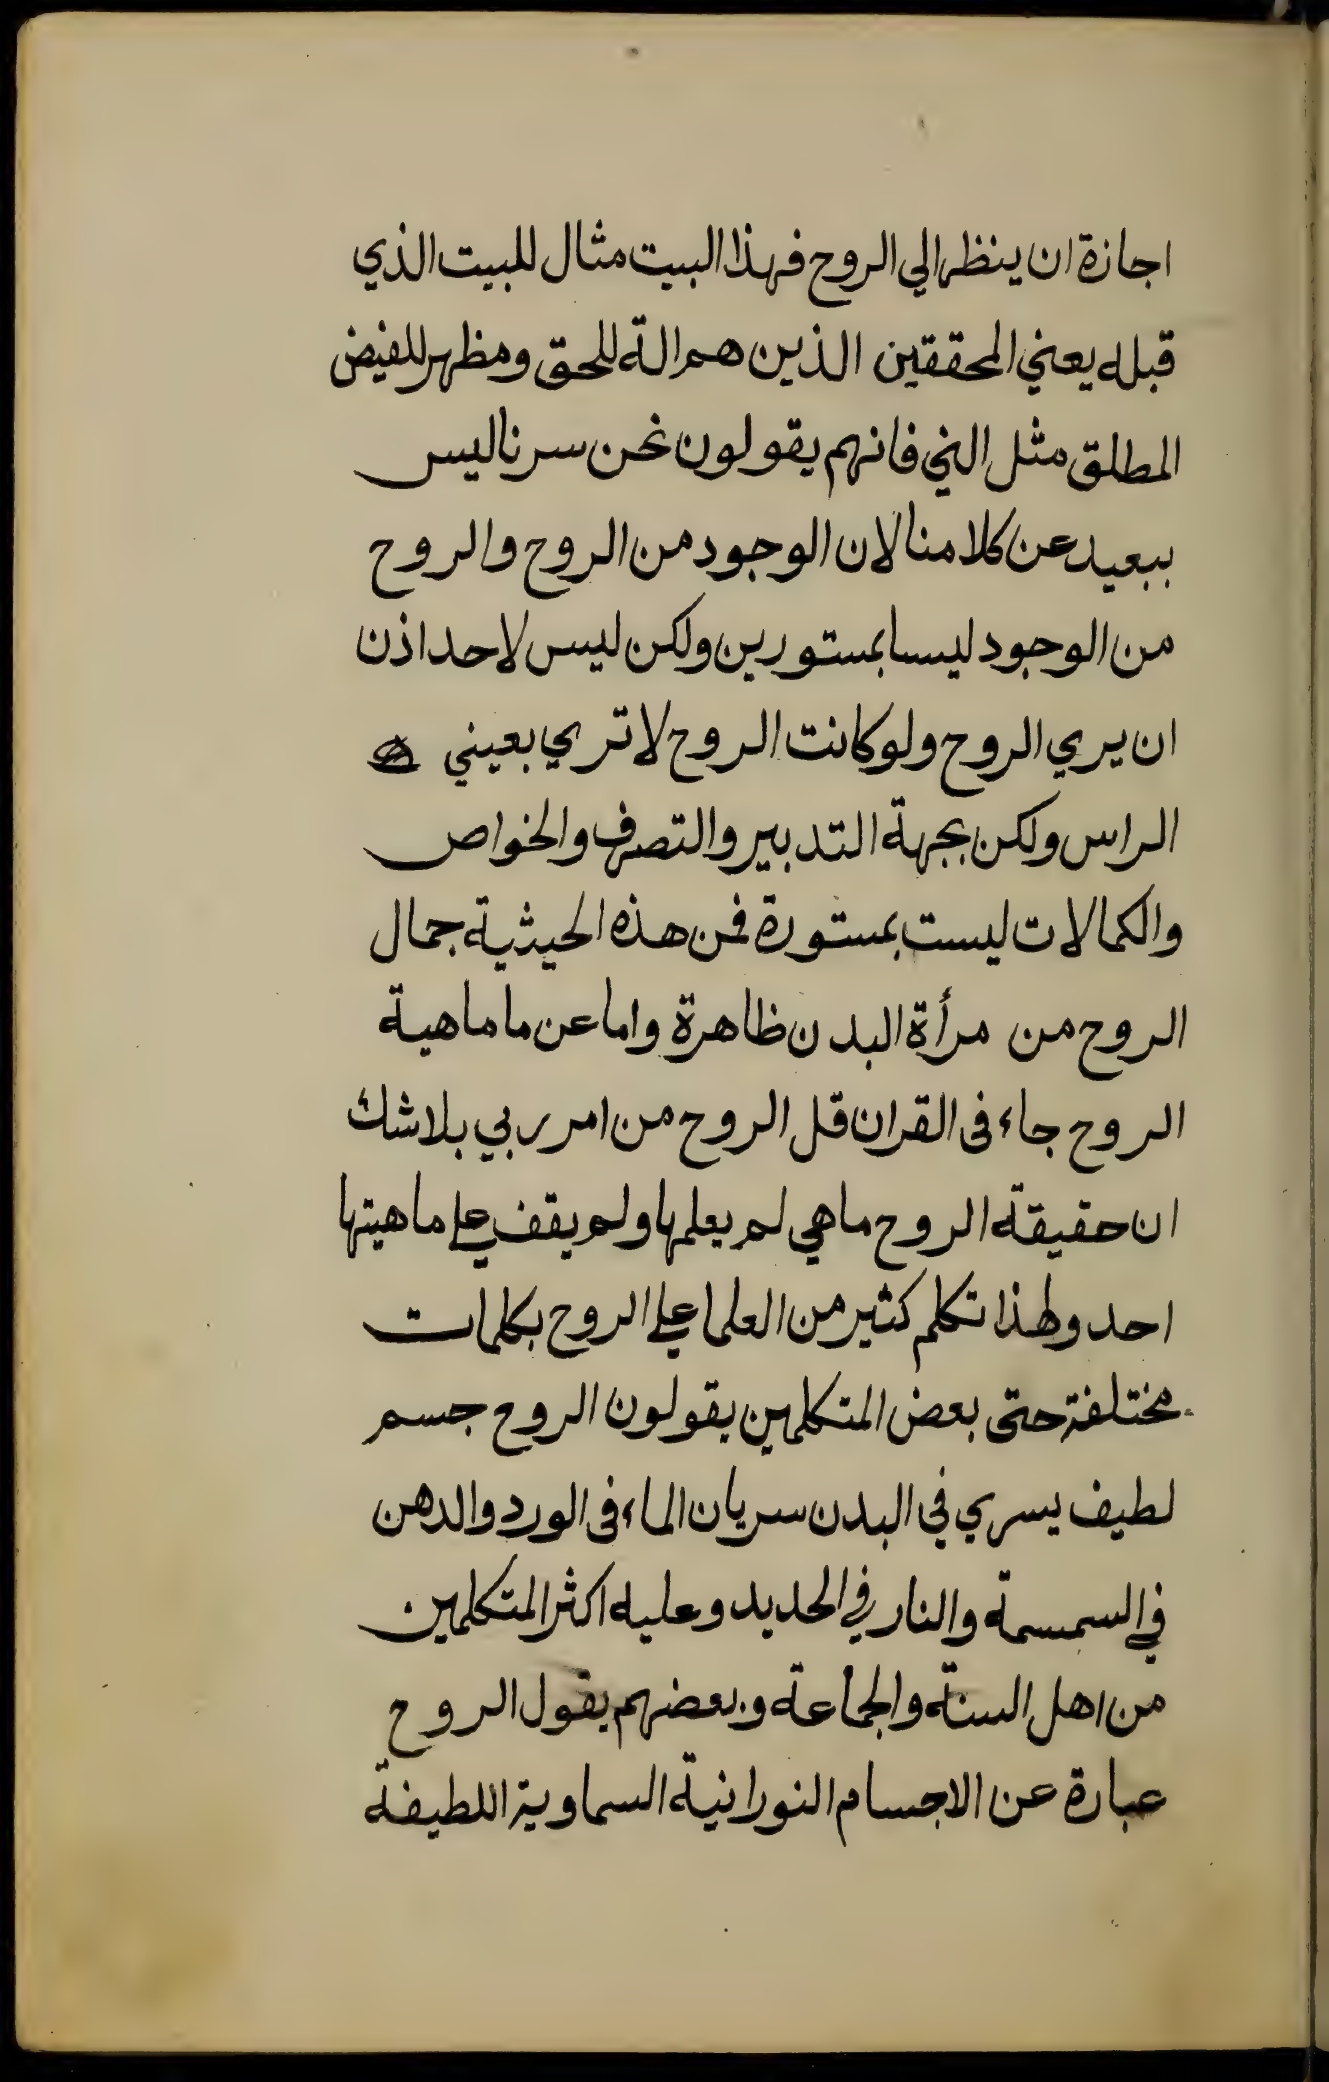 اجازة ان ينظر الي الروح فهذا البيت مثال للبيت الذي
قبله يعني المحققين الذين هم الة للحق ومظهر للفيض
المطلق مثل الني فانهم يقولون نحن سرنا ليس
ببعيد عن كلامنا لان الوجود من الروح والروح
من الوجود ليسا بمستورين ولكن ليس لاحد اذن
ان يري الروح ولو كانت الروح لا تري بعيني
الراس ولكن بجهة التدبير والتصرف والخواص
والكمالات ليست بمستورة فمن هذه الحيثية جمال
الروح من مرأة البدن ظاهرة واما عن ما ماهية
الروح جاء فى القران قل الروح من امر ربي بلا شك
ان حقيقة الروح ما هي لم يعلمها ولم يقف علي ماهيتها
احد ولهذا تكلم كثير من العلما علي الروح بكلمات
مختلفة حتى بعض المتكلمين يقولون الروح جسم
لطيف يسري في البدن سريان الماء فى الورد والدهن
في السمسمة والنار في الحديد وعليه اكثر المتكلمين
من اهل السنة والجماعة وبعضهم يقول الروح
عبارة عن الاجسام النورانية السماوية اللطيفة